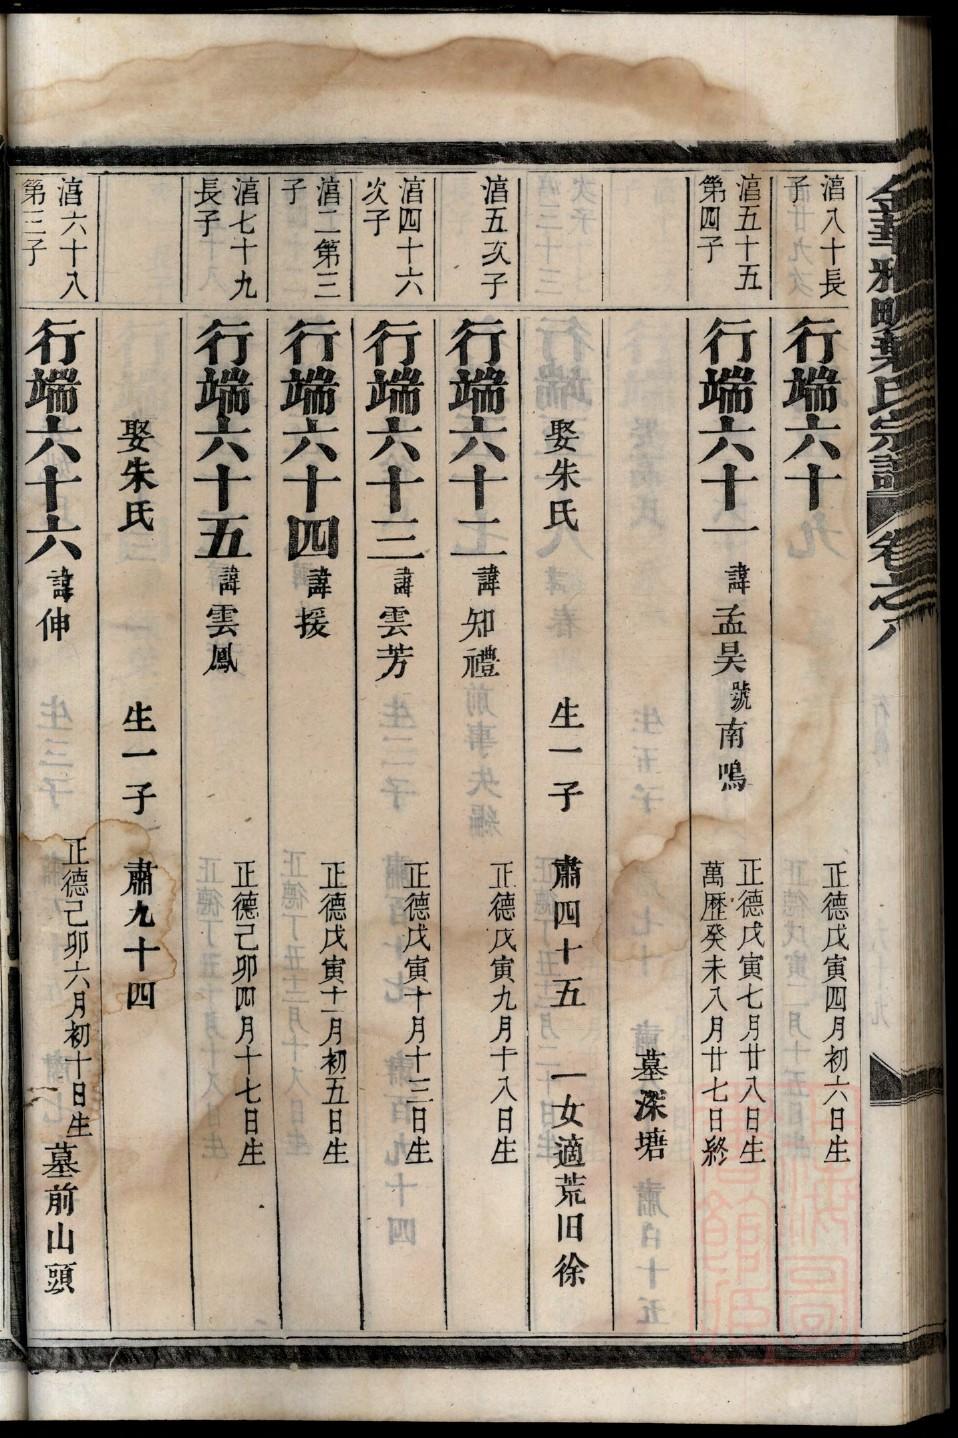 金華雅畈葉氏宗譜 卷之八
湻八十長
子
行端六十
正德戊寅四月初六日生
湻五十五
第四子
行端六十一 諱孟昊 號南鳴
正德戊寅七月廿八日生
萬歷癸未八月廿七日終
墓深塘
娶朱氏 生一子 肅四十五 一女適荒旧徐
湻五次子
行端六十二 諱知禮
正德戊寅九月十八日生
湻四十六
次子
行端六十三 諱雲芳
正德戊寅十月十三日生
湻二第三
子
行端六十四 諱援
正德戊寅十一月初五日生
湻七十九
長子
行端六十五 諱雲鳳
正德己卯四月十七日生
娶朱氏 生一子 肅九十四
湻六十八
第三子
行端六十六 諱伸
正德己卯六月初十日生
墓前山頭